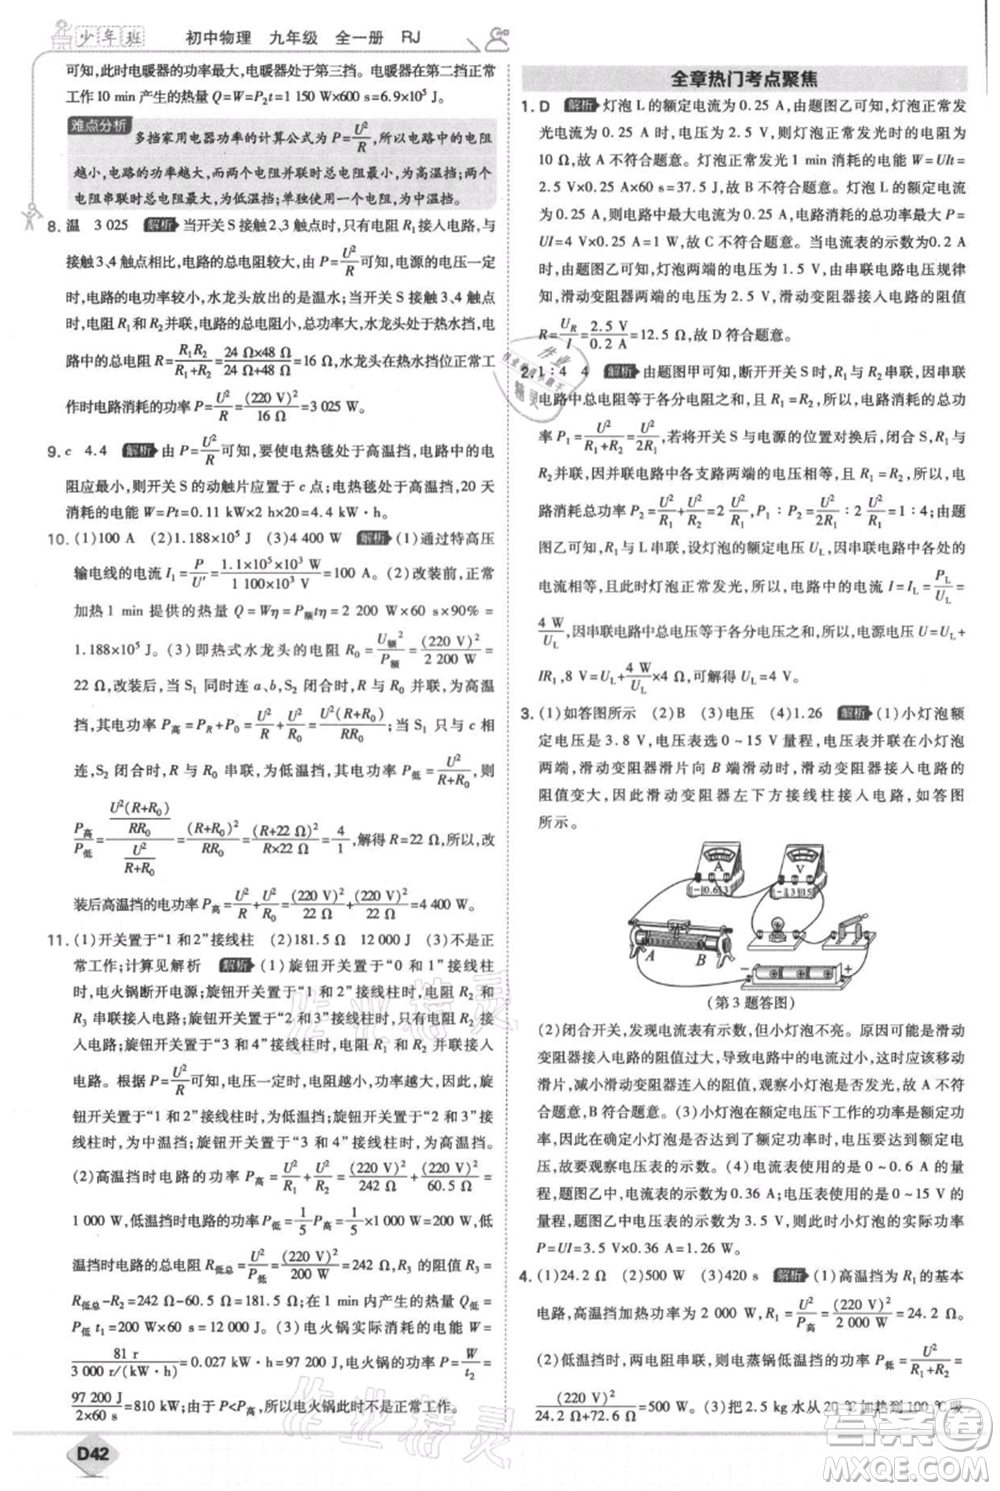 少年班 初中物理 九年级 全一册 RJ
可知,此时电暖器的功率最大,电暖器处于第三挡。电暖器在第二挡正常
工作10 min 产生的热量 Q=W=P₂t=1 150 W×600 s=6.9×10⁵ J。
难点分析
多挡家用电器功率的计算公式为 P=U²/R,所以电路中的电阻
越小,电路的功率越大,而两个电阻并联时总电阻最小,为高温挡;两个
电阻串联时总电阻最大,为低温挡;单独使用一个电阻,为中温挡。
8. 温 3 025 解析 当开关S接触2、3触点时,只有电阻R₁接入电路,与
触点接触3、4时相比,电路的总电阻较大,由 P=U²/R 可知,电源的电压一定
时,电路的电功率较小,水龙头放出的是温水;当开关S接触3、4触点时,
电阻 R₁ 和 R₂ 并联,电路的总电阻最小,水龙头处于热水挡,此时电
路中的总电阻 R=R₁R₂/(R₁+R₂)=(24 Ω×48 Ω)/(24 Ω+48 Ω)=16 Ω,水龙头在热水挡位正常工
作时电路消耗的功率 P=U²/R=(220 V)²/16 Ω=3 025 W。
9. c 4.4 解析 由 P=U²/R 可知,要使电热毯处于高温挡,电路中的电
阻应最小,则开关S的动触片应置于c点;电热毯处于高温挡,20天
消耗的电能 W=Pt=0.11 kW×2 h×20=4.4 kW·h。
10. (1)100 A (2)1.188×10⁵ J (3)4 400 W 解析 (1)通过特高压
输电线的电流 I₁=P/U′=1.1×10⁵×10³ W/1 100×10³ V=100 A。(2)改装前,正常
加热1 min 提供的热量 Q=Wη=P额tη=2 200 W×60 s×90%=
1.188×10⁵ J。(3)即热式水龙头的电阻 R₀=U额²/P额=(220 V)²/2 200 W=
22 Ω,改装后,当 S₁ 同时连 a、b,S₂ 闭合时 R 与 R₀ 并联,为高温
挡,其电功率 P高=P_R+P₀=U²/R+U²/R₀=U²(R+R₀)/RR₀;当 S₁ 只与 c 处相
连,S₂ 闭合时 R 与 R₀ 串联,为低温挡,其电功率 P低=U²/(R+R₀),则
P高/P低=[U²(R+R₀)/RR₀]/[U²/(R+R₀)]=(R+R₀)²/RR₀=(R+22 Ω)²/(R×22 Ω)=4/1,解得 R=22 Ω,所以,改
装后高温挡的电功率 P高=U²/R+U²/R₀=(220 V)²/22 Ω+(220 V)²/22 Ω=4 400 W。
11. (1)开关置于“1和2”接线柱 (2)181.5 Ω 12 000 J (3)不是正
常工作;计算见解析 解析 (1)旋钮开关置于“0和1”接线柱
时,电火锅断开电源;旋钮开关置于“1和2”接线柱时,R₂ 与
R₁ 串联接入电路;旋钮开关置于“2和3”接线柱时,只有 R₁ 接入
电路;旋钮开关置于“3和4”接线柱时,R₁ 和 R₂ 并联接入
电路。根据 P=U²/R 可知,电压不变时,电阻越大,电功率越小,旋
钮开关置于“1和2”接线柱时,为低温挡;旋钮开关置于“2和3”
接线柱时,为中温挡;旋钮开关置于“3和4”接线柱时,为高温挡。
(2)高温挡时电路的功率 P高=U²/R₁+U²/R₂=(220 V)²/242 Ω+(220 V)²/60.5 Ω=
1 000 W,低温挡时电路的功率 P低=1/5 P高=1/5×1 000 W=200 W,
低温挡时电路的总电阻 R低总=U²/P低=(220 V)²/200 W=242 Ω,R₂=
R低总−R₁=242 Ω−60.5 Ω=181.5 Ω;在1 min 内产生的热量 Q=W低=
P低t₁=200 W×60 s=12 000 J。(3)电火锅实际消耗的电能 W=
81 r/3 000 r/(kW·h)=0.027 kW·h=97 200 J,电火锅的实际功率 P=W/t₂=
97 200 J/2×60 s=810 W;由于 P<P高,所以电火锅此时不是正常工作。
全章热门考点聚焦
1. D 解析 灯泡 L 的额定电流为 0.25 A,由题图乙可知,灯泡正常发
光时的电流为 0.25 A,电压为 2.5 V,则灯泡正常发光时的电阻为
10 Ω,故 A 不符合题意。灯泡正常发光 1 min 消耗的电能 W=UIt=
2.5 V×0.25 A×60 s=37.5 J,故 B 不符合题意。灯泡的额定电流
为0.25 A,电路中最大电流为 0.25 A,电路消耗的最大功率 P=
UI=4 V×0.25 A=1 W,故 C 不符合题意。当电流表的示数为0.2 A
时,由题图乙可知,灯泡两端的电压为 1.5 V,由串联电路电压规律
知,滑动变阻器两端的电压为 2.5 V,滑动变阻器接入电路的阻值
R=U_R/I=2.5 V/0.2 A=12.5 Ω,故 D 符合题意。
2. 1∶4 4 解析 由题图甲可知,断开开关S时,R₁ 与 R₂ 串联,因串联
电路中总电阻等于各分电阻之和,所以,此时电路消耗的总功
率 P₁=U²/(R₁+R₂)=U²/2R₁;若将开关S与电源的位置对换后,闭合开关S,R₁、
R₂并联,因并联电路中各支路两端的电压相等,所以,此时电
路消耗总功率 P₂=U²/R₁+U²/R₂=2U²/R₁,则 P₁/P₂=U²/2R₁∶2U²/R₁=1∶4,由题
图乙可知,R₁ 与 L 串联,设灯泡的额定电压为 U_L,因串联电路中各处
电流相等,且此时灯泡正常发光,所以,电路中的电流 I=I_L=P_L/U_L=
4 W/U_L,因串联电路中总电压等于各分电压之和,所以,电源电压 U=U_L+
IR₁,8 V=U_L+4 W/U_L×4 Ω,解得 U_L=4 V。
3. (1)如答图所示 (2)B (3)电压 (4)1.26 解析 (1)小灯泡额
定电压是3.8 V,电压表选0~15 V量程,并联在小灯泡
两端,滑动变阻器滑片向 B 端滑动时,小灯泡变暗,则接入电路
的阻值变大,因此滑动变阻器左下方接线柱接入电路,如答图
所示。
A V
−0.6 3 −3 15
A B
(第3题答图)
(2)闭合开关,发现电流表有示数,但小灯泡不亮。原因可能是滑动
变阻器接入电路的阻值过大,导致电路中的电流过小,故应移动
滑片,减小滑动变阻器连入的阻值,观察小灯泡是否发光,故 A 不符
合题意,B 符合题意。(3)小灯泡在额定电压下工作的功率是额定功
率,因此在确定小灯泡是否达到了额定功率时,应看是否达到额定电
压,故要观察电压表的示数。(4)电流表选择的是0~0.6 A 的量
程,题图乙中电流表的示数为0.36 A;电压表选择的是0~15 V 量
程,题图乙中电压表的示数为 3.5 V,此时小灯泡的实际功率
P=UI=3.5 V×0.36 A=1.26 W。
4. (1)24.2 Ω (2)500 W (3)420 s 解析 (1)高温挡为 R₁的基本
电路,高温挡加热功率为 2 000 W,R₁=U²/P高=(220 V)²/2 000 W=24.2 Ω。
(2)低温挡时,两电阻串联,则电蒸锅低温挡的功率 P低=U²/(R₁+R₂)
=(220 V)²/(24.2 Ω+72.6 Ω)=500 W。(3)2.5 kg 水从20 ℃加热到100 ℃吸
D42
作业精灵
答案圈
MXQE.COM